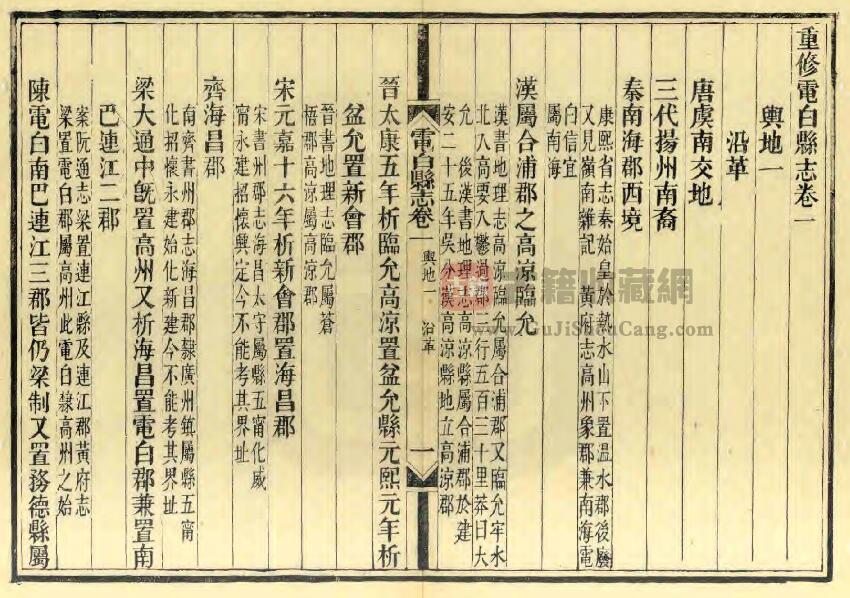 重修電白縣志卷一
輿地一
沿革
唐虞南交地
三代揚州南裔
秦南海郡西境
康熙省志秦始皇於熱水山下置溫水郡後廢
又見嶺南雜記 黃府志高州象郡兼南海電
白信宜
屬南海
漢屬合浦郡之高涼臨允
漢書地理志高涼臨允屬合浦郡又臨允牢水
北入高要入鬱過郡三行五百三十里莽曰大
允 後漢書地理志高涼縣屬合浦郡於建
安二十五年吳分漢高涼縣地立高涼郡
電白縣志卷一 輿地一 沿革 一
晉太康五年析臨允高涼置盆允縣元熙元年析
盆允置新會郡
晉書地理志臨允屬蒼
梧郡高涼屬高涼郡
宋元嘉十六年析新會郡置海昌郡
宋書州郡志海昌太守屬縣五甯化威
甯永建招懷興定今不能考其界址
齊海昌郡
南齊書州郡志海昌郡隸廣州鎮屬縣五甯
化招懷永建始化新建今不能考其界址
梁大通中旣置高州又析海昌置電白郡兼置南
巴連江二郡
案阮通志梁置連江縣及連江郡黃府志
梁置電白郡屬高州此電白隸高州之始
陳電白南巴連江三郡皆仍梁制又置務德縣屬
古籍收藏網
www.GuJiShouCang.com